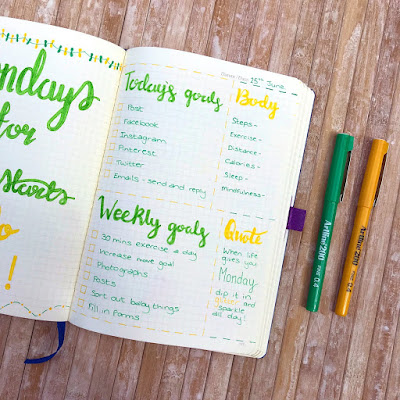 ondays
for
Starts
!
15th June
Today's goals
Post
Facebook
Instagram
Pinterest
Twitter
Emails - send and reply
Body
Steps-
Exercise-
Distance-
Calories-
Sleep-
Mindfulness-
Weekly goals
30 mins exercise a day
Increase move goal
Photographs
Posts
Sort out baby things
Fill in forms
Quote
When life
gives you
Monday,
dip it in
glitter and
sparkle
all day!
Artline 200
FINE 0.4
Artline 200
FINE 0.4